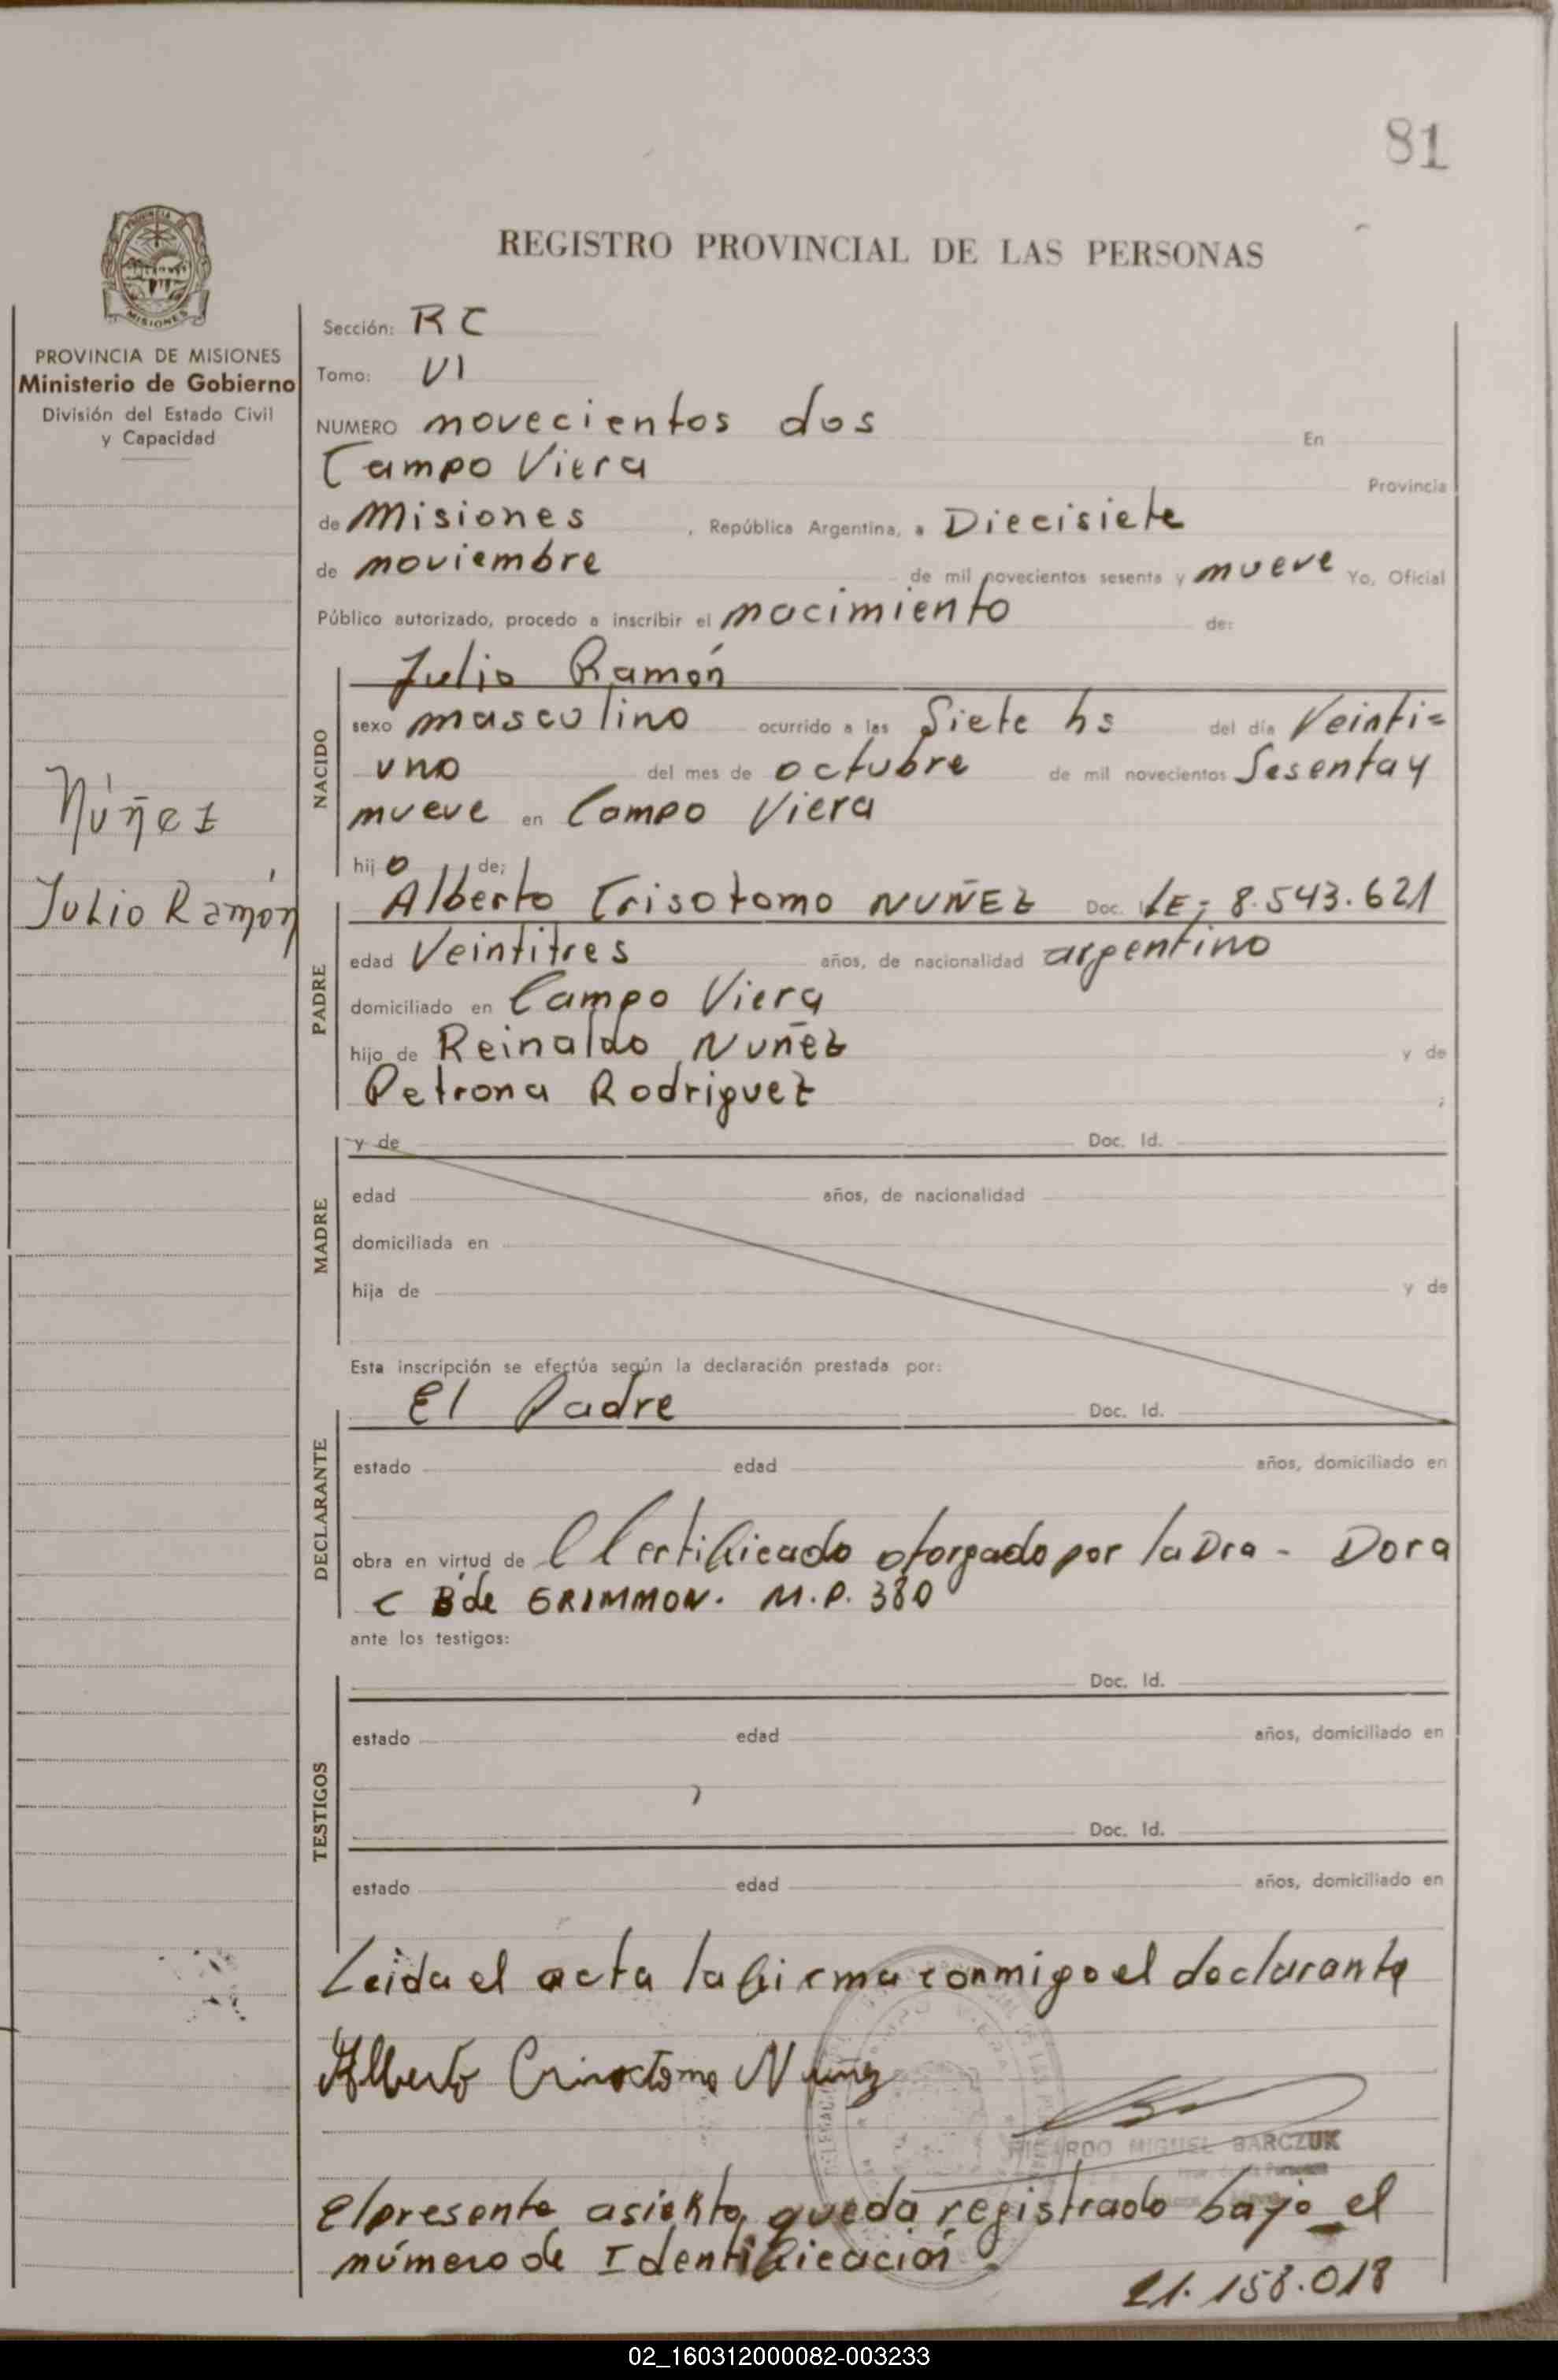 81
REGISTRO PROVINCIAL DE LAS PERSONAS
MISIONES
PROVINCIA DE MISIONES
Ministerio de Gobierno
División del Estado Civil
y Capacidad
Núñez
Julio Ramón
Sección: RC
Tomo: VI
NUMERO novecientos dos En
Campo Viera Provincia
de Misiones , República Argentina, a Diecisiete
de noviembre de mil novecientos sesenta y nueve Yo, Oficial
Público autorizado, procedo a inscribir el nacimiento de:
NACIDO
Julio Ramón
sexo masculino ocurrido a las Siete hs del día Veinti=
uno del mes de octubre de mil novecientos Sesenta y
nueve en Campo Viera
hijo de;
PADRE
Alberto Crisotomo NUÑEZ Doc. LE; 8.543.621
edad Veintitres años, de nacionalidad argentino
domiciliado en Campo Viera
hijo de Reinaldo Nuñez y de
Petrona Rodriguez ;
MADRE
y de Doc. Id.
edad años, de nacionalidad
domiciliada en
hija de y de
Esta inscripción se efectúa según la declaración prestada por:
DECLARANTE
El Padre Doc. Id.
estado edad años, domiciliado en
obra en virtud de Certificado otorgado por la Dra - Dora
C B de GRIMMON. M.P. 380
ante los testigos:
TESTIGOS
Doc. Id.
estado edad años, domiciliado en
Doc. Id.
estado edad años, domiciliado en
Leida el acta la firma conmigo el declarante
Alberto Crisostomo Nuñez
RICARDO MIGUEL BARCZUK
El presente asiento, queda registrado bajo el
número de Identificación -
21.158.018
02_160312000082-003233